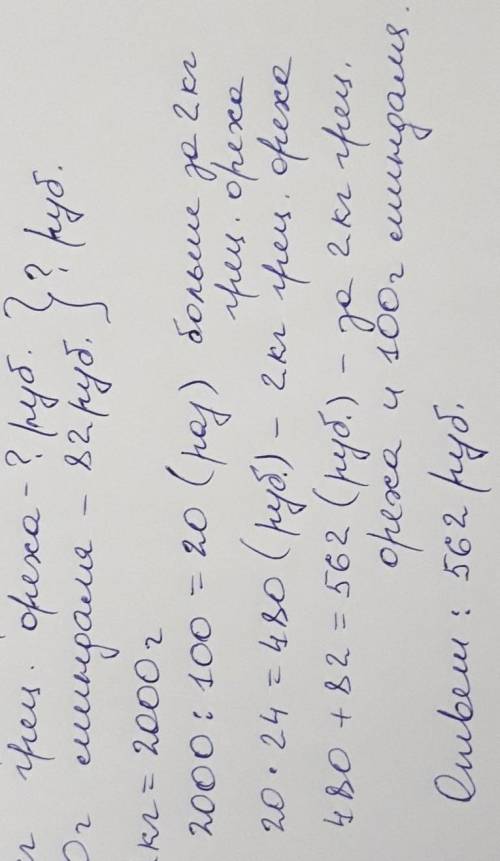 грец. ореха - ? руб. } ? руб.
0г миндаля - 82 руб.
кг = 2000 г
2000 : 100 = 20 (раз) больше за 2 кг
грец. ореха
20 · 24 = 480 (руб.) - 2 кг грец. ореха
480 + 82 = 562 (руб.) - за 2 кг грец.
ореха и 100 г миндаля.
Ответ : 562 руб.